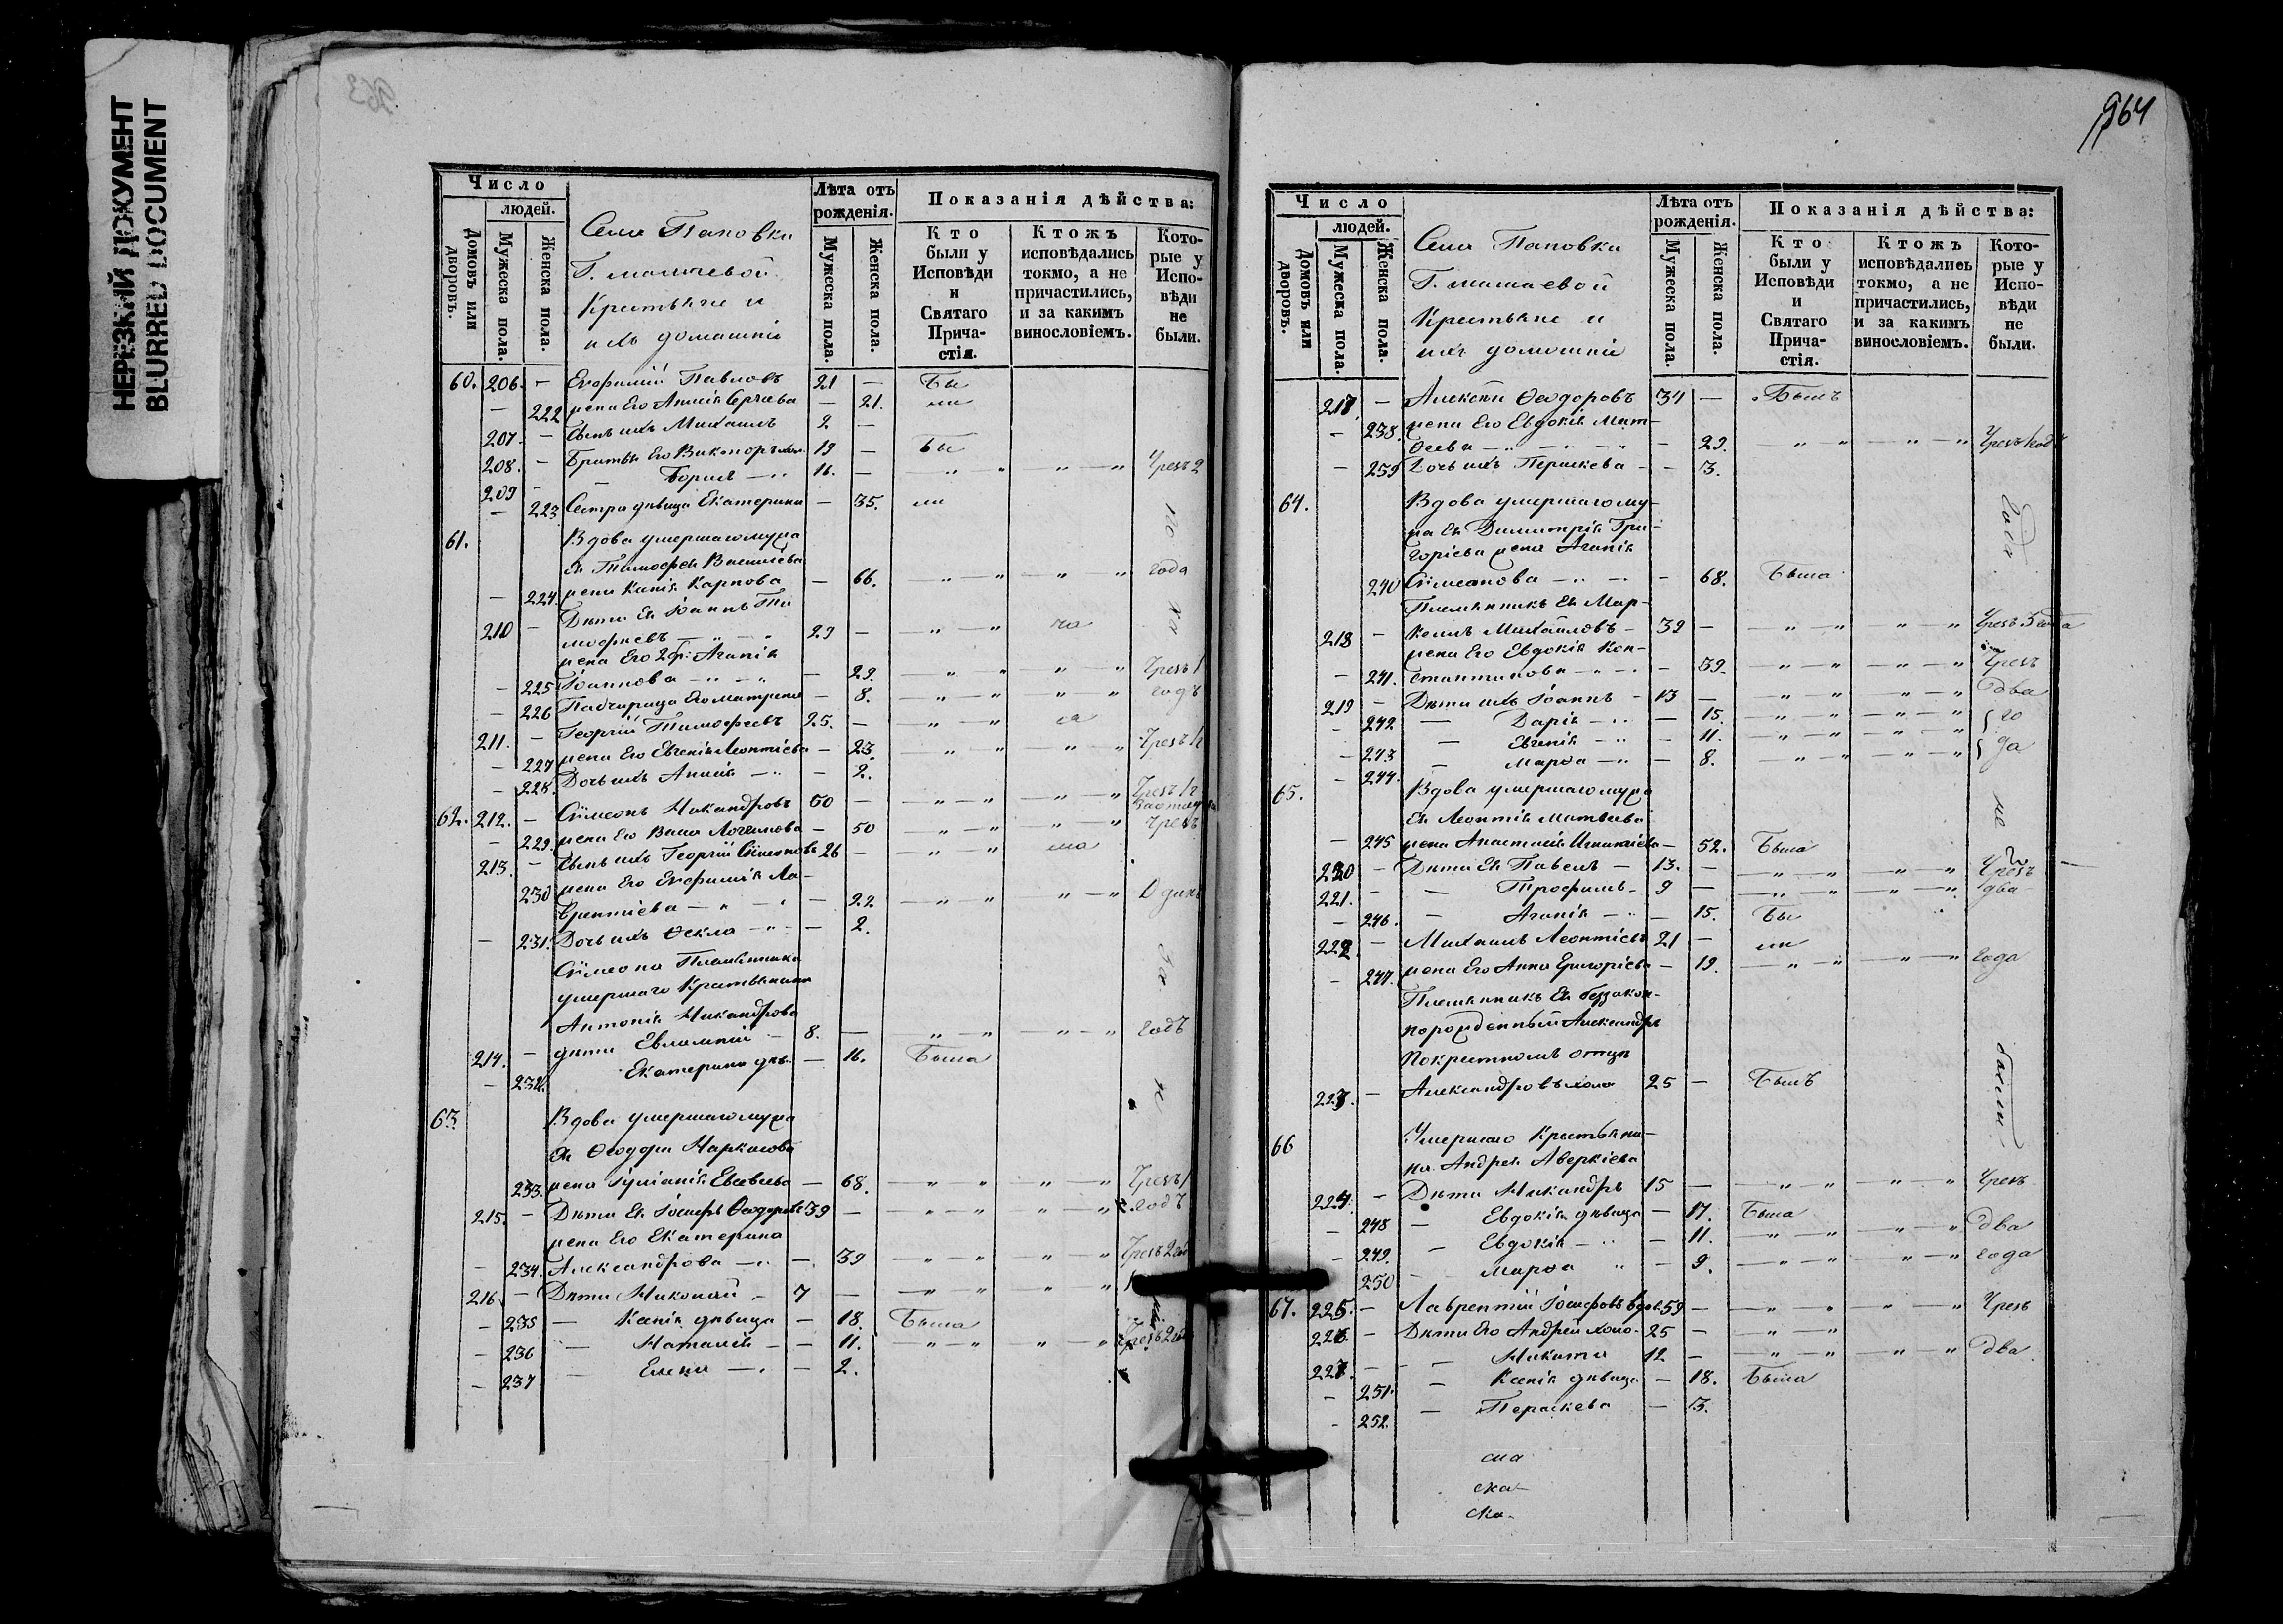 НЕРЕЗКИЙ ДОКУМЕНТ
BLURRED DOCUMENT
963
Число
людей.
Домовъ или дворовъ.
Мужеска пола.
Женска пола.
Села Паповки
Г.
Крестьяне и
ихъ домашніе
Лѣта отъ рожденія.
Мужеска пола.
Женска пола.
Показанія дѣйства:
Кто были у Исповѣди и Святаго Прича-стія.
Ктожъ исповѣдались токмо, а не причастились, и за какимъ винословіемъ.
Кото-рые у Испо-вѣди не были.
60. 206. — Евфимій Павловъ 21 — Бы
— 222 жена Его Анна Сергѣева — 21. ли
207. — Сынъ ихъ Михаилъ 2 —
208. — Братья Его Викторъ хол. 19 — Бы
209 — — Борисъ — 16. — Чрезъ 2
— 223 Сестра дѣвица Екатерина — 35. ли
61. Вдова умершаго мужа
Ея Тимофея Васильева
— 224. жена Карпова — 66. года
Дѣти Ея Іоаннъ Ти
210 — мофѣевъ 29 —
жена Его 2 бр: Агапія
— 225 Іоаннова — 29. Чрезъ 1
— 226 Падчерица Его Матрена — 8. годъ
211. — Георгій Тимофѣевъ 25. —
— 227 жена Его Евгенія Леонтіева — 23. Чрезъ 1
— 228. Дочь ихъ Анна — 2.
62. 212. — Сѷмеонъ Никандровъ 50 — Чрезъ
— 229. жена Его Логгинова — 50 чрезъ
213. — Сынъ ихъ Георгій Сѷмеоновъ 26 —
230 жена Его Евфимія Ла-
врентіева — 22 Одинъ
— 231. Дочь ихъ Ѳекла — 2.
Сѷмеона Племянника
умершаго Крестьянина
Антонія Никандрова
214. — дѣти Евлампій — 8. — годъ
— 232. Екатерина дѣв. — 16. Была
63. Вдова умершаго мужа
Ея Ѳеодора
233. жена Іуліанія Евсевьева — 68. Чрезъ 1
215. — Дѣти Ея Іосифъ Ѳеодоровъ 39 — годъ
жена Его Екатерина
— 234. Александрова — 39 Чрезъ 2
216. — Дѣти Николай — 7 —
— 235 — Ксенія дѣвица — 18. Была
— 236 — Наталія — 11. Чрезъ 2
— 237 — Елена — 2.
964
Число
людей.
Домовъ или дворовъ.
Мужеска пола.
Женска пола.
Села Паповки
Г.
Крестьяне и
ихъ домашніе
Лѣта отъ рожденія.
Мужеска пола.
Женска пола.
Показанія дѣйства:
Кто были у Исповѣди и Святаго Прича-стія.
Ктожъ исповѣдались токмо, а не причастились, и за какимъ винословіемъ.
Кото-рые у Испо-вѣди не были.
217. — Алексѣй Ѳеодоровъ 34 — Былъ
— 238. жена Его Евдокія Мат-
ѳеева — 29. Чрезъ 1 годъ
— 239 Дочь ихъ Параскева — 3.
64. Вдова умершаго му-
жа Ея Димитрія Гри-
горіева жена Агапія
240 Сѷмеонова — 68. Была
Племянникъ Ея Мар-
218 — Михайловъ — 39 — Чрезъ 3 года
жена Его Евдокія Кон-
— 241. стантинова — 39. Чрезъ
219 — Дѣти ихъ Іоаннъ — 13 — два
— 242 — Дарія — 15. го
— 243 — Евгенія — 11.
— 244. — Марѳа — 8. да
65. Вдова умершаго мужа
Ея Леонтія Матвѣева
— 245 жена Анастасія Игнатіева — 52. Была
220 — Дѣти Ея Павелъ — 13. — Чрезъ
221. — — Трофимъ — 9 — два
— 246. — Агапія — 15. Бы
222 — Михаилъ Леонтіевъ 21 — ли
— 247. жена Его Анна Григоріева — 19. года
Племянникъ Ея беззакон-
норожденный Александръ
По крестномъ отцѣ
223. — Александровъ холо 25 — Былъ
66 Умершаго Крестьяни-
на Андрея Аверкіева
224. — Дѣти Никандръ 15 — Чрезъ
— 248 — Евдокія дѣвица — 17. Была
— 249. — Евдокія — 11. два
250 — Марѳа — 9. года
67. 225. — Лаврентій Іосифовъ вдов. 59 — Чрезъ
226. — Дѣти Его Андрей холо. 25 —
227. — — Никита 12 — два
— 251. — Ксенія дѣвица — 18. Была
— 252. — Параскева — 3.
не
были